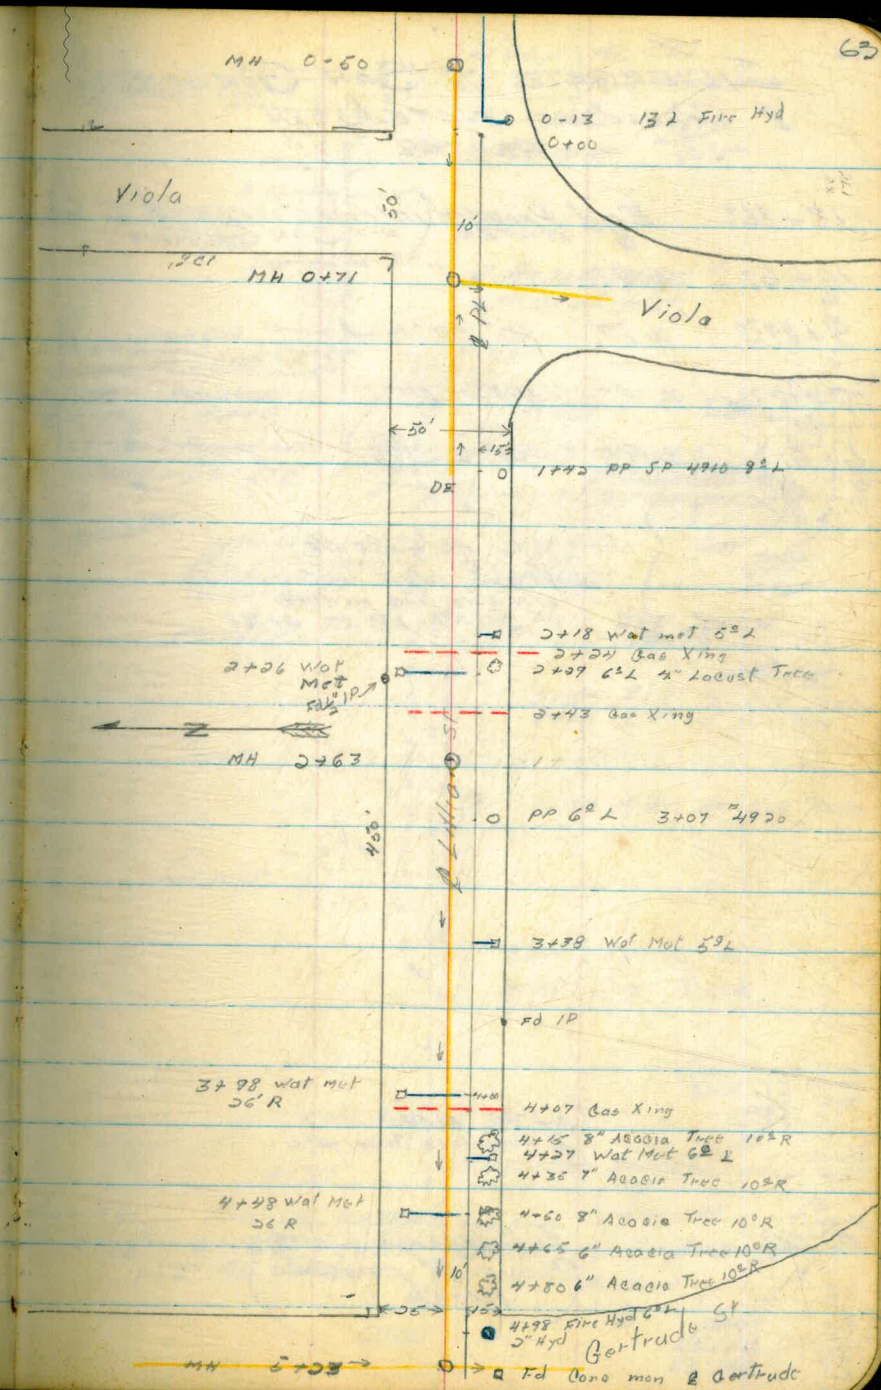 63
MH 0-50
0-13 132 Fire Hyd
0+00
Viola
50'
10'
MH 0+71
Viola
50'
15'
1+42 PP SP 4910 8º L
DE
2+18 Wat met 5º L
2+24 Gas Xing
2+26 Wat Met
2+29 6º L 4" Locust Tree
Fd ½" IP
2+43 Gas Xing
N
MH 2+63
PP 6º L 3+07 #4920
450'
3+38 Wat Met 5º L
Fd IP
3+98 Wat Met
26' R
4+00
4+07 Gas Xing
4+15 8" Acacia Tree 10º R
4+27 Wat Met 6º L
4+35 7" Acacia Tree 10º R
4+48 Wat Met
26 R
4+50 8" Acacia Tree 10º R
4+65 6" Acacia Tree 10º R
10'
4+80 6" Acacia Tree 10º R
25
15
4+98 Fire Hyd 6º L
2" Hyd
Gertrude St
MH 5+23
Fd Conc mon ℄ Gertrude